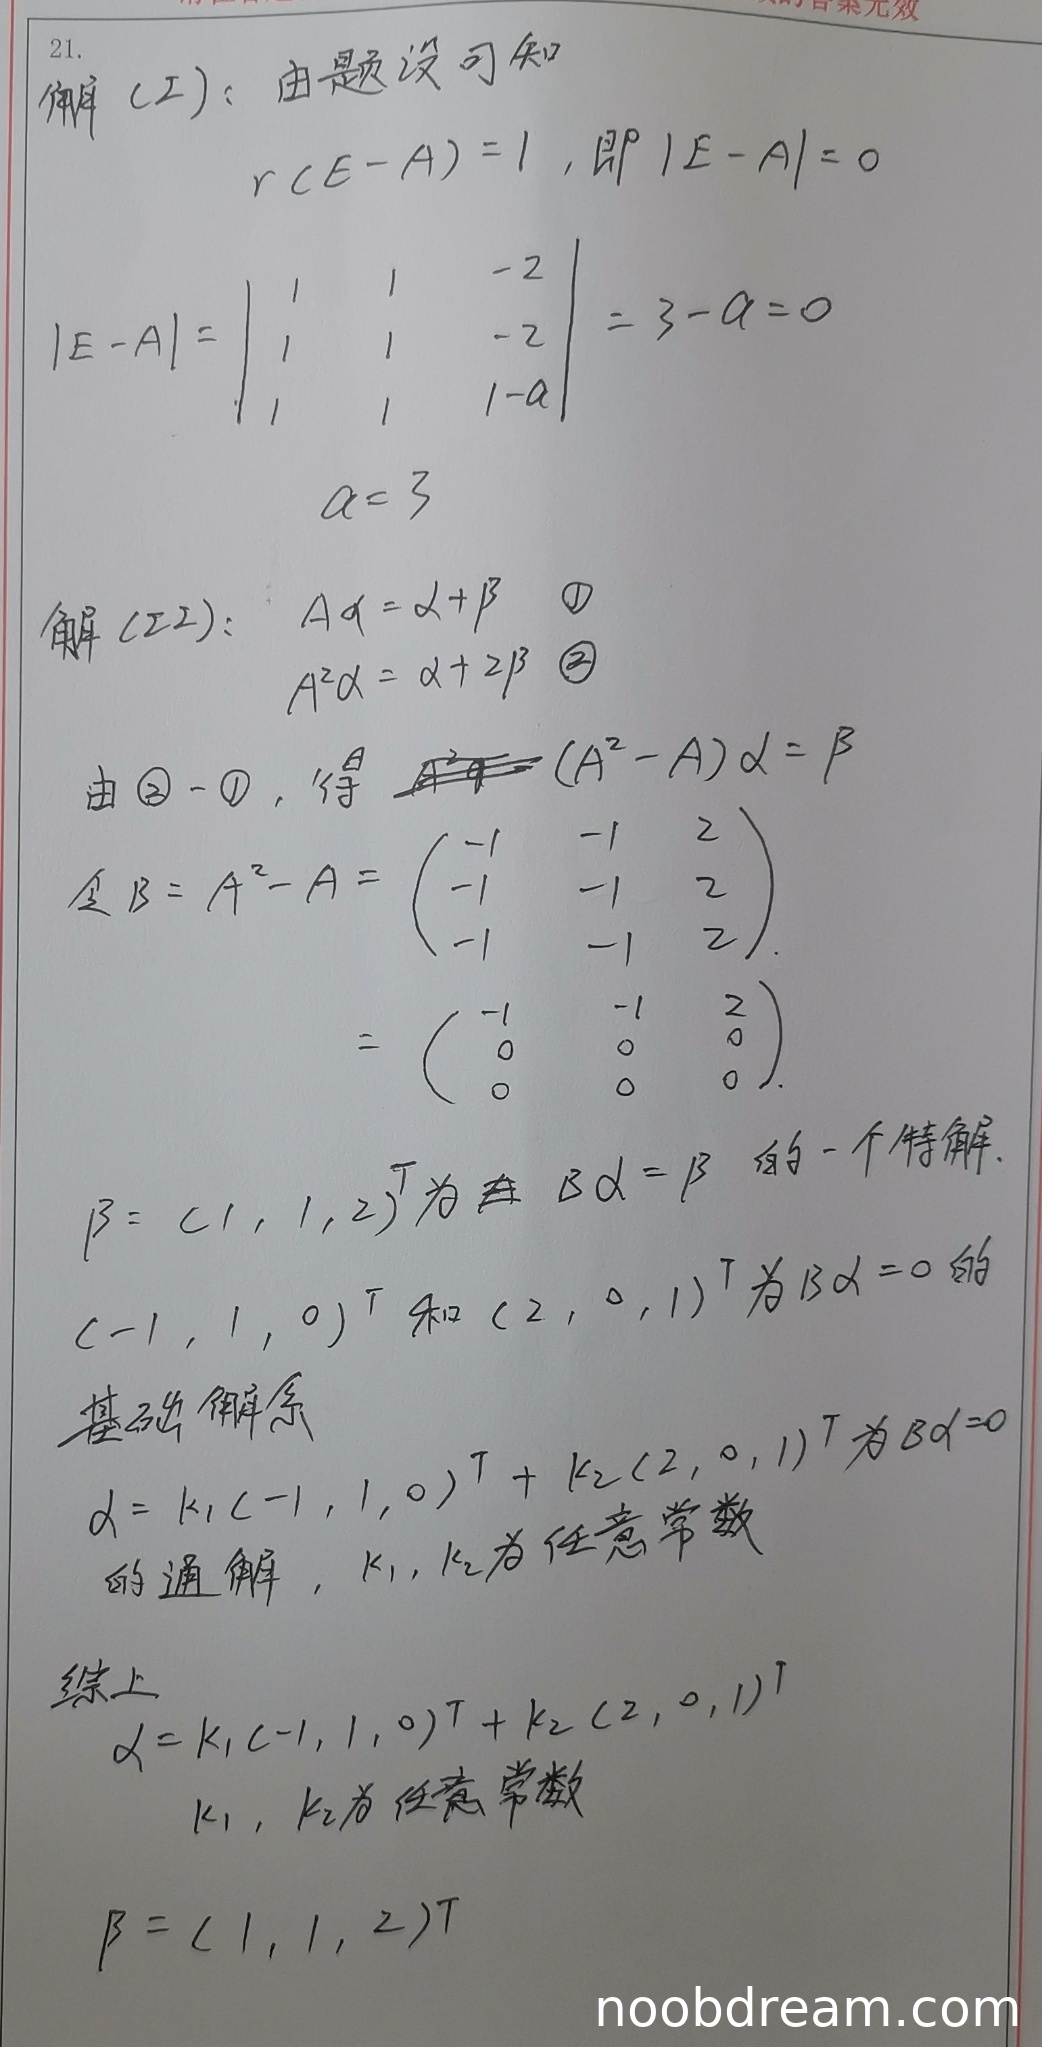 答案无效
21.
解(I):由题设可知
r(E-A)=1,即|E-A|=0
|E-A|=
1 1 -2
1 1 -2
1 1 1-a
=3-a=0
a=3
解(II): Aα=α+β ①
A²α=α+2β ②
由②-①,得 (A²-A)α=β
令B=A²-A=
-1 -1 2
-1 -1 2
-1 -1 2
=
-1 -1 2
0 0 0
0 0 0
β=(1,1,2)ᵀ为 Bα=β 的一个特解.
(-1,1,0)ᵀ和(2,0,1)ᵀ为Bα=0的
基础解系
α=k₁(-1,1,0)ᵀ+k₂(2,0,1)ᵀ为Bα=0
的通解,k₁,k₂为任意常数
综上
α=k₁(-1,1,0)ᵀ+k₂(2,0,1)ᵀ
k₁,k₂为任意常数
β=(1,1,2)ᵀ
noobdream.com